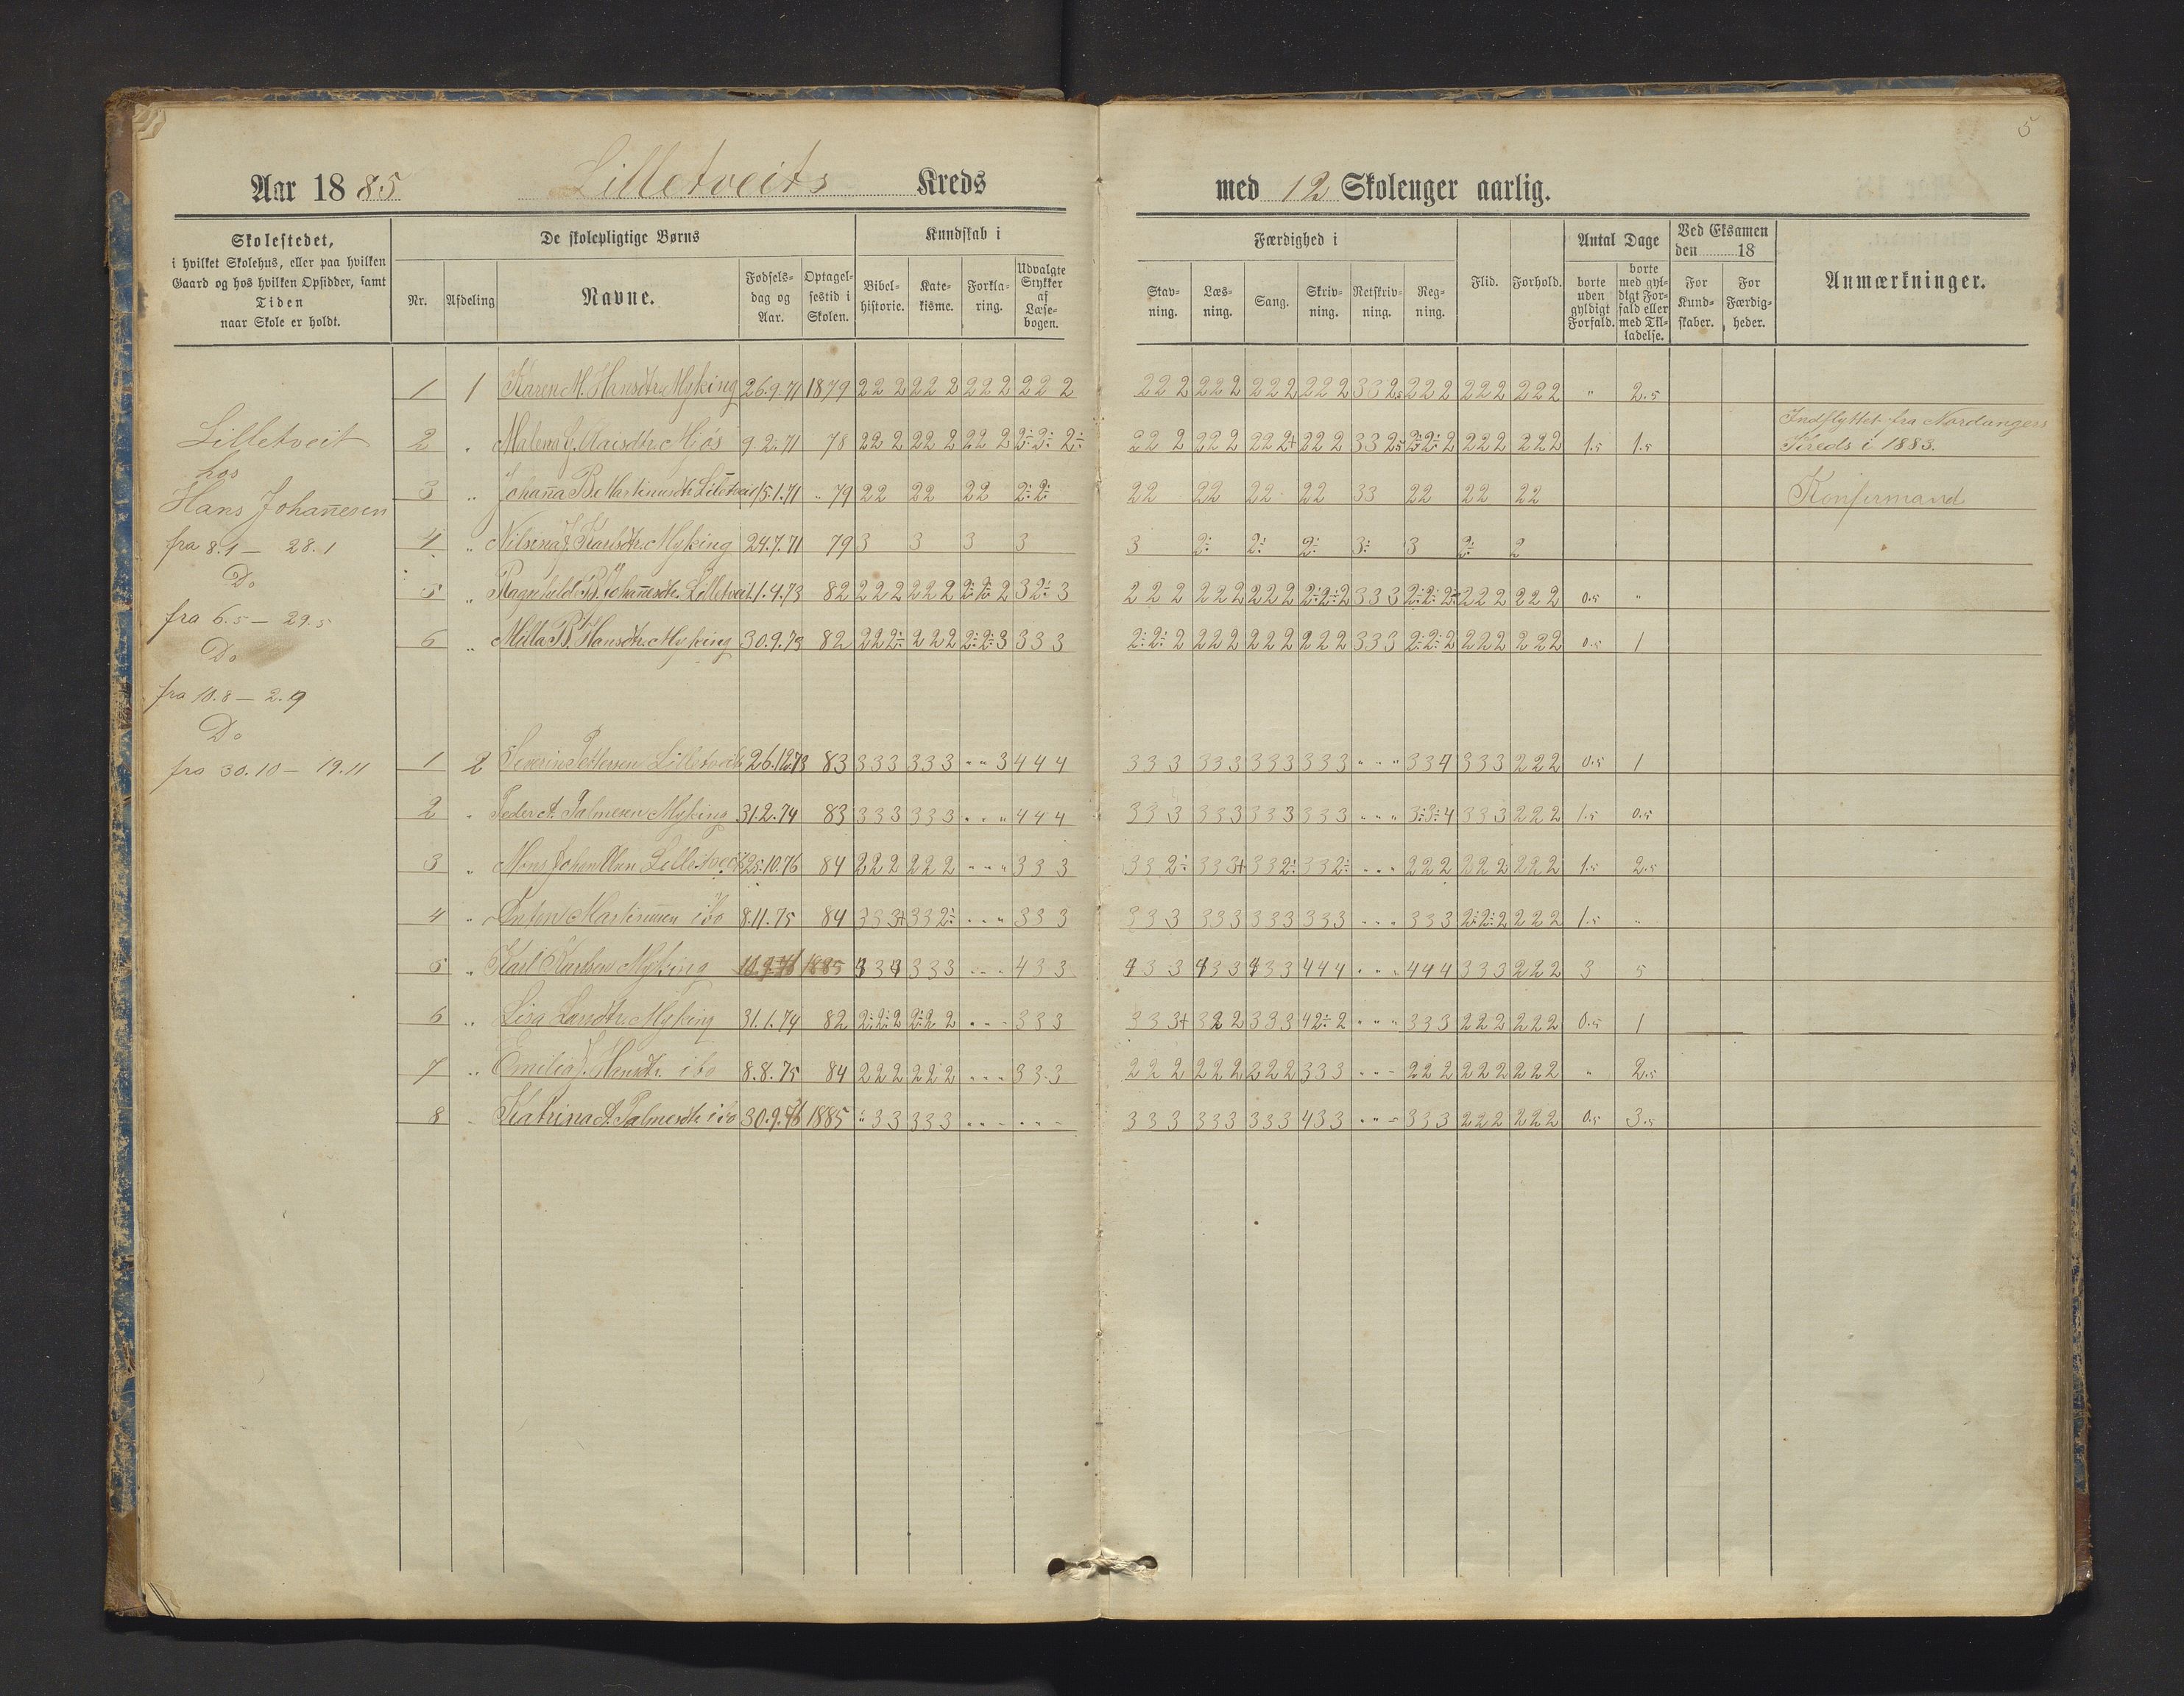 5
Aar 1885 Lilletveits Kreds med 12 Skolenger aarlig.
Skolestedet,
i hvilket Skolehus, eller paa hvilken
Gaard og hos hvilken Opsidder, samt
Tiden
naar Skole er holdt.
De skolepligtige Børns
Nr. Afdeling Navne. Fødselsdag og Aar. Optagelsestid i Skolen.
Kundskab i
Bibelhistorie. Katekisme. Forklaring. Udvalgte Stykker af Læsebogen.
Færdighed i
Stavning. Læsning. Sang. Skrivning. Retskrivning. Regning.
Flid. Forhold.
Antal Dage
borte uden gyldigt Forfald. borte med gyldigt Forfald eller med Tilladelse.
Ved Eksamen den 18
For Kundskaber. For Færdigheder.
Anmærkninger.
Lilletveit
hos
Hans Johannesen
fra 8.1 — 28.1
Do
fra 6.5 — 29.5
Do
fra 10.8 — 2.9
Do
fra 30.10 — 19.11
1 1 Karen M. Hansdtr. Myking 26.9.71 1879 222 222 222 222 222 222 222 222 332.5 222 222 222 " 2.5
2 " Malena G. Mjøs 9.2.71 78 222 222 222 2÷2÷2÷ 222 222 222+ 222 332.5 222 222 1.5 1.5 Indflyttet fra Nordangers Kreds i 1883.
3 " Johanna B. Martinusdtr. Lilletveit 15.1.71 " 79 22 22 22 2÷2÷ 22 22 22 22 33 22 22 22 Konfirmand
4 " Nilsina J. Karlsdtr. Myking 24.7.71 79 3 3 3 3 3 2÷ 2÷ 2÷ 3÷ 3 2÷ 2
5 " Ragnhild B. Johannesdtr. Lilletveit 1.4.73 82 222 222 2÷2÷2 32÷3 222 222 222 2÷2÷2 333 2÷2÷2÷ 222 222 0.5 "
6 " Milla B. Hansdtr. Myking 30.9.73 82 222÷ 222 2÷2÷3 333 2÷2÷2 222 222 222 333 2÷2÷2 222 222 0.5 1
1 2 Severin Pettersen Lilletveit 26.12.73 83 333 333 " " 3 444 333 333 333 333 " " " 334 333 222 0.5 1
2 " Peder A. Palmesen Myking 31.2.74 83 333 333 " " " 444 333 333 333 333 " " " 3÷3÷4 333 222 1.5 0.5
3 " Mons Johan Olsen Lilletveit 25.10.76 84 222 222 " " " 333 332÷ 333+ 332÷ 332÷ " " " 222 222 222 1.5 2.5
4 " Anton Martinusen ibd 8.11.75 84 333+ 332÷ " " " 333 333 333 333 333 " " " 333 2÷2÷2 222 1.5 "
5 " Karl Karlsen Myking 1885 333 " " " 433 433 433 433 444 " " " 444 333 222 3 5
6 " Lisa Larsdtr. Myking 31.1.74 82 2÷2÷2 2÷22 " " " 333 333+ 322 333 42÷2 " " " 333 222 222 0.5 1
7 " Emilia J. Hansdtr. ibd 8.8.75 84 222 222 " " " 333 222 222 222 333 " " " 222 222 222 " 2.5
8 " Katrina A. Palmesdtr. ibd 30.9.76 1885 " 33 333 " " " " " " 333 333 333 433 " " " 333 222 222 0.5 3.5